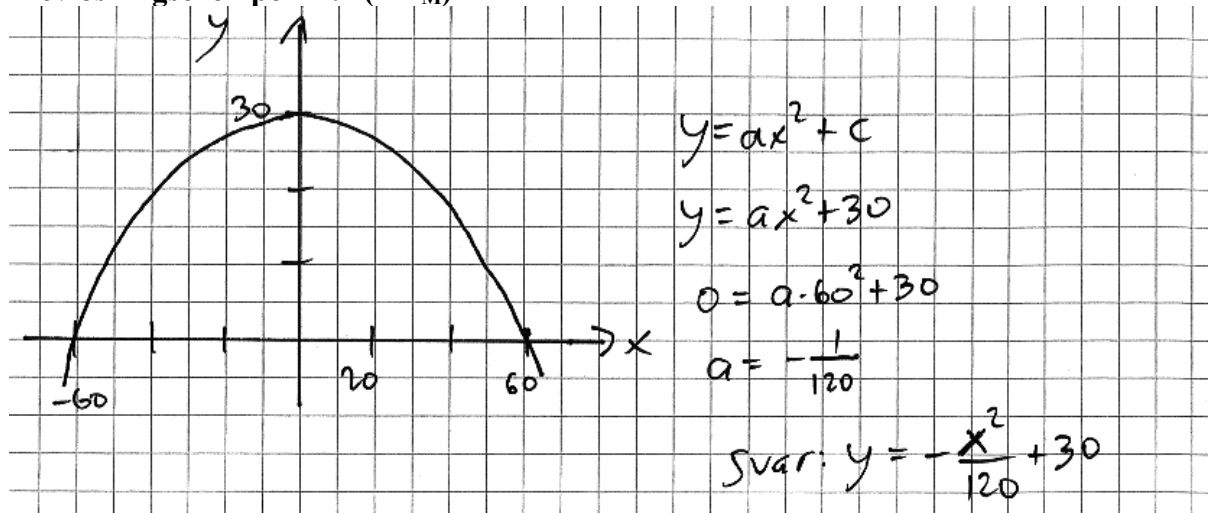 y
30
x
-60
20
60
y = ax² + c
y = ax² + 30
0 = a · 60² + 30
a = - 1/120
Svar: y = - x²/120 + 30